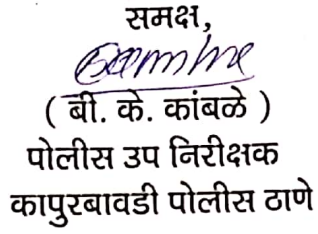 समक्ष,
( बी. के. कांबळे )
पोलीस उप निरीक्षक
कापुरबावडी पोलीस ठाणे